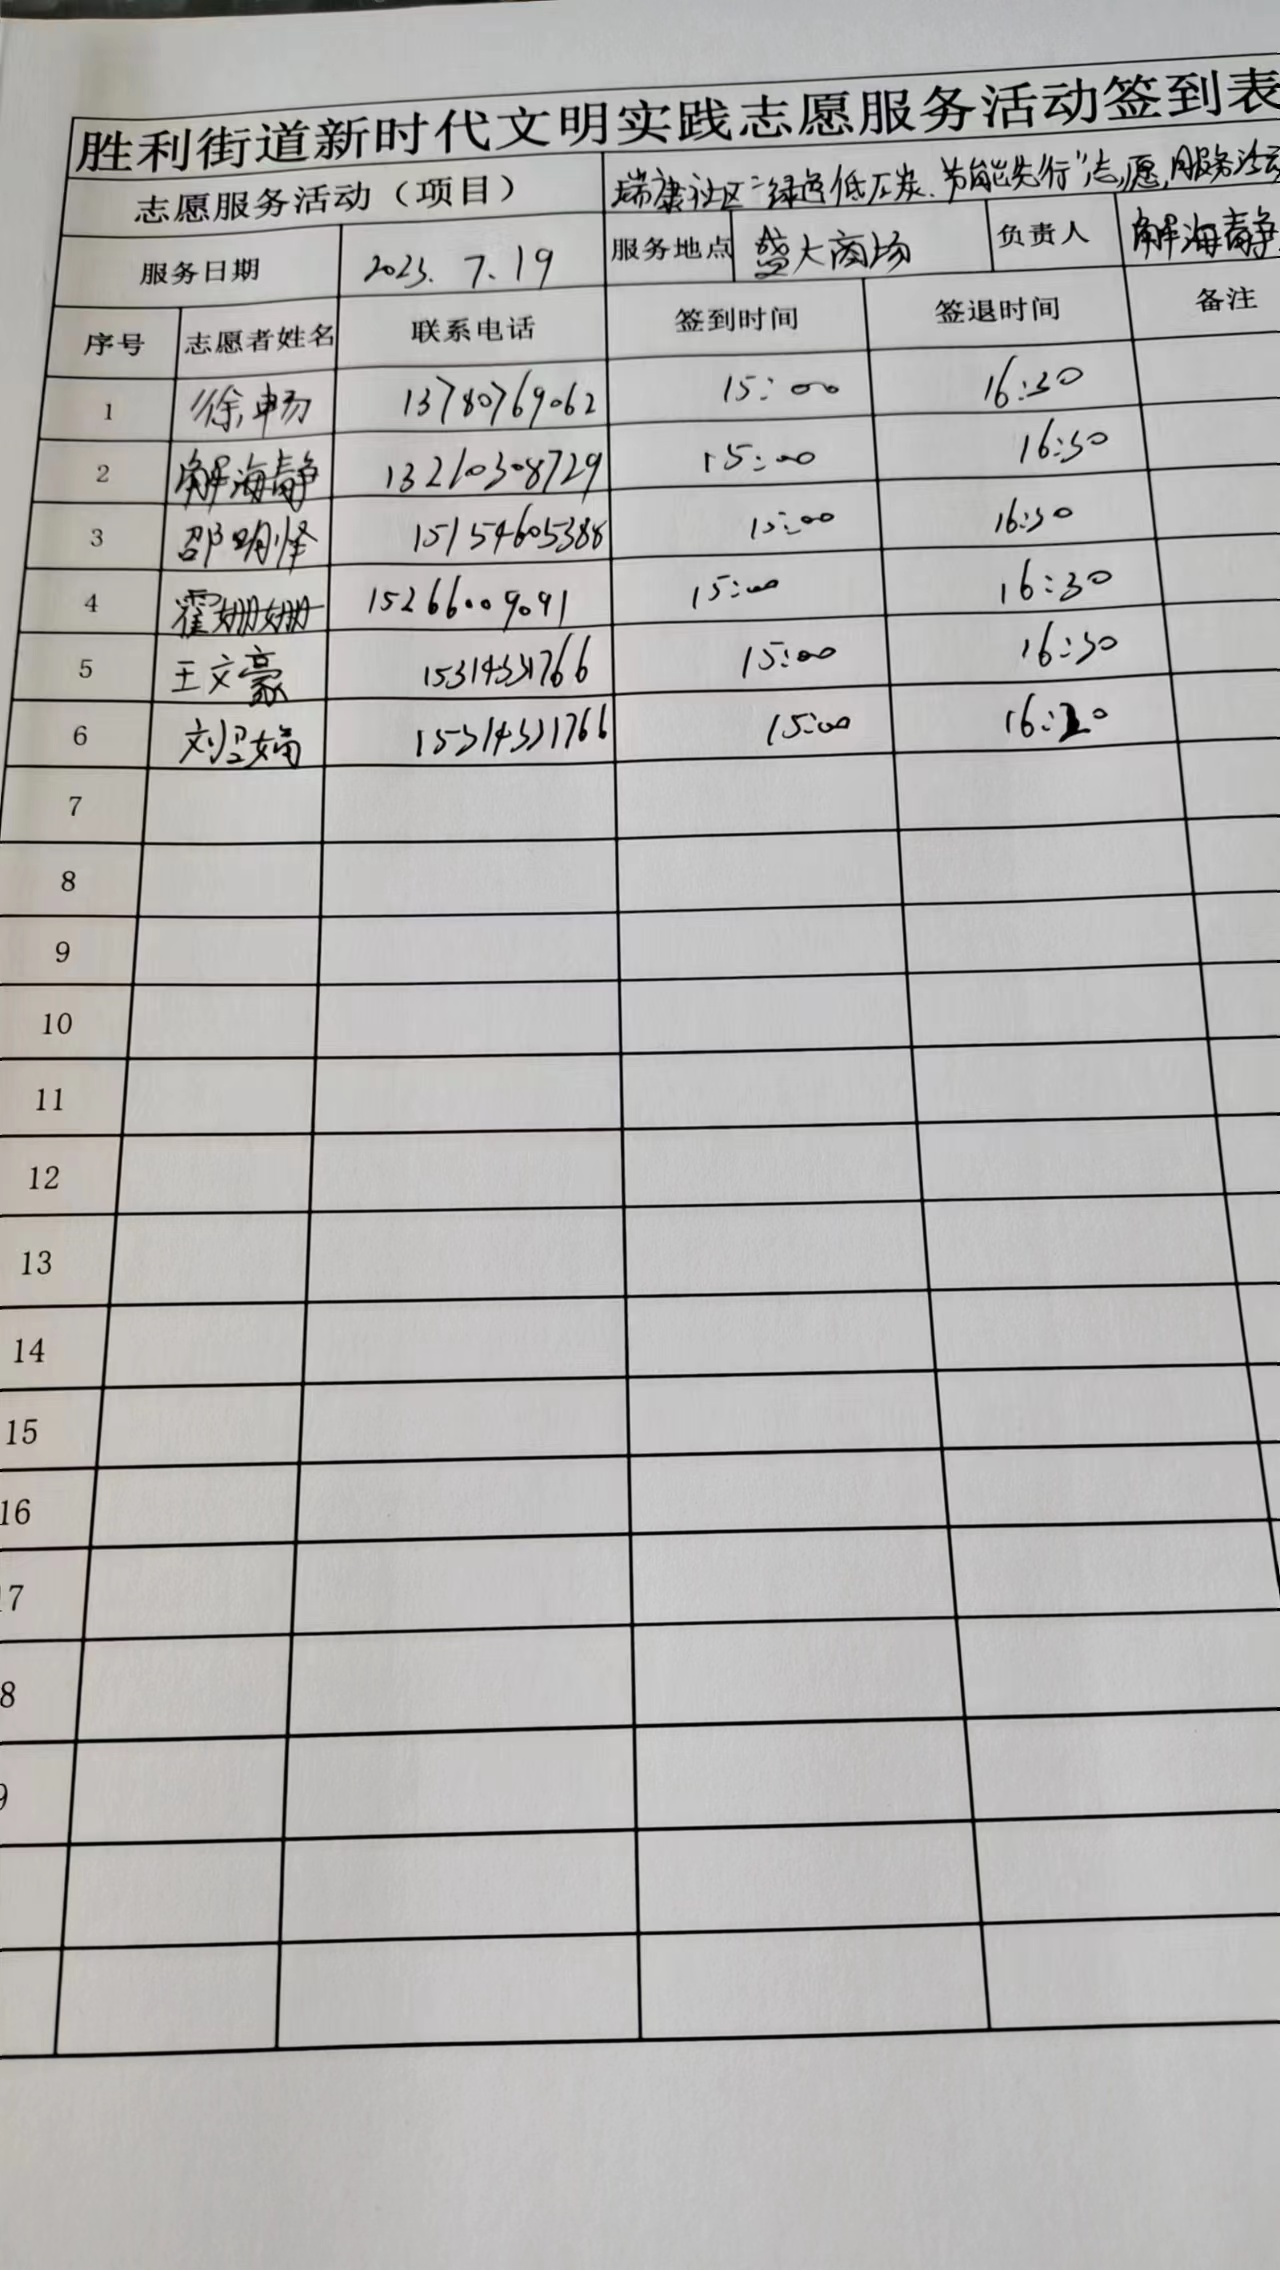 胜利街道新时代文明实践志愿服务活动签到表
志愿服务活动（项目） 瑞康社区“绿色低碳、节能先行”志愿服务活动
服务日期 2023.7.19 服务地点 盛大商场 负责人 解海静
序号 志愿者姓名 联系电话 签到时间 签退时间 备注
1 徐畅 13780769062 15:00 16:30
2 解海静 13210308729 15:00 16:30
3 邵明怿 15154605388 15:00 16:30
4 霍姗姗 15266009091 15:00 16:30
5 王文豪 15314331766 15:00 16:30
6 15314331766 15:00
7
8
9
10
11
12
13
14
15
16
17
8
9